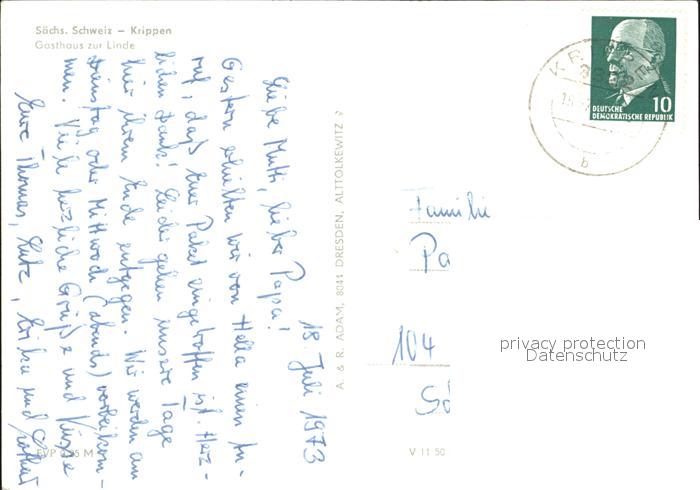 Sächs. Schweiz – Krippen
Gasthaus zur Linde
18. Juli 1973
Liebe Mutti, lieber Papa!
Gestern erhielten wir von Hella einen An-
ruf, daß Euer Paket eingetroffen ist. Herz-
lichen Dank! Leider gehen unsere Tage
hier ihrem Ende entgegen. Wir werden am
Dienstag oder Mittwoch (abends) vorbeikom-
men. Viele herzliche Grüße und Küsse
Eure Thomas, Lutz, Erika und Lothar
EVP 0,25 M
V 11 50
A. & R. ADAM, 8041 DRESDEN, ALTTOLKEWITZ
DEUTSCHE
DEMOKRATISCHE REPUBLIK
10
b
Familie
Pa
104
privacy protection
Datenschutz